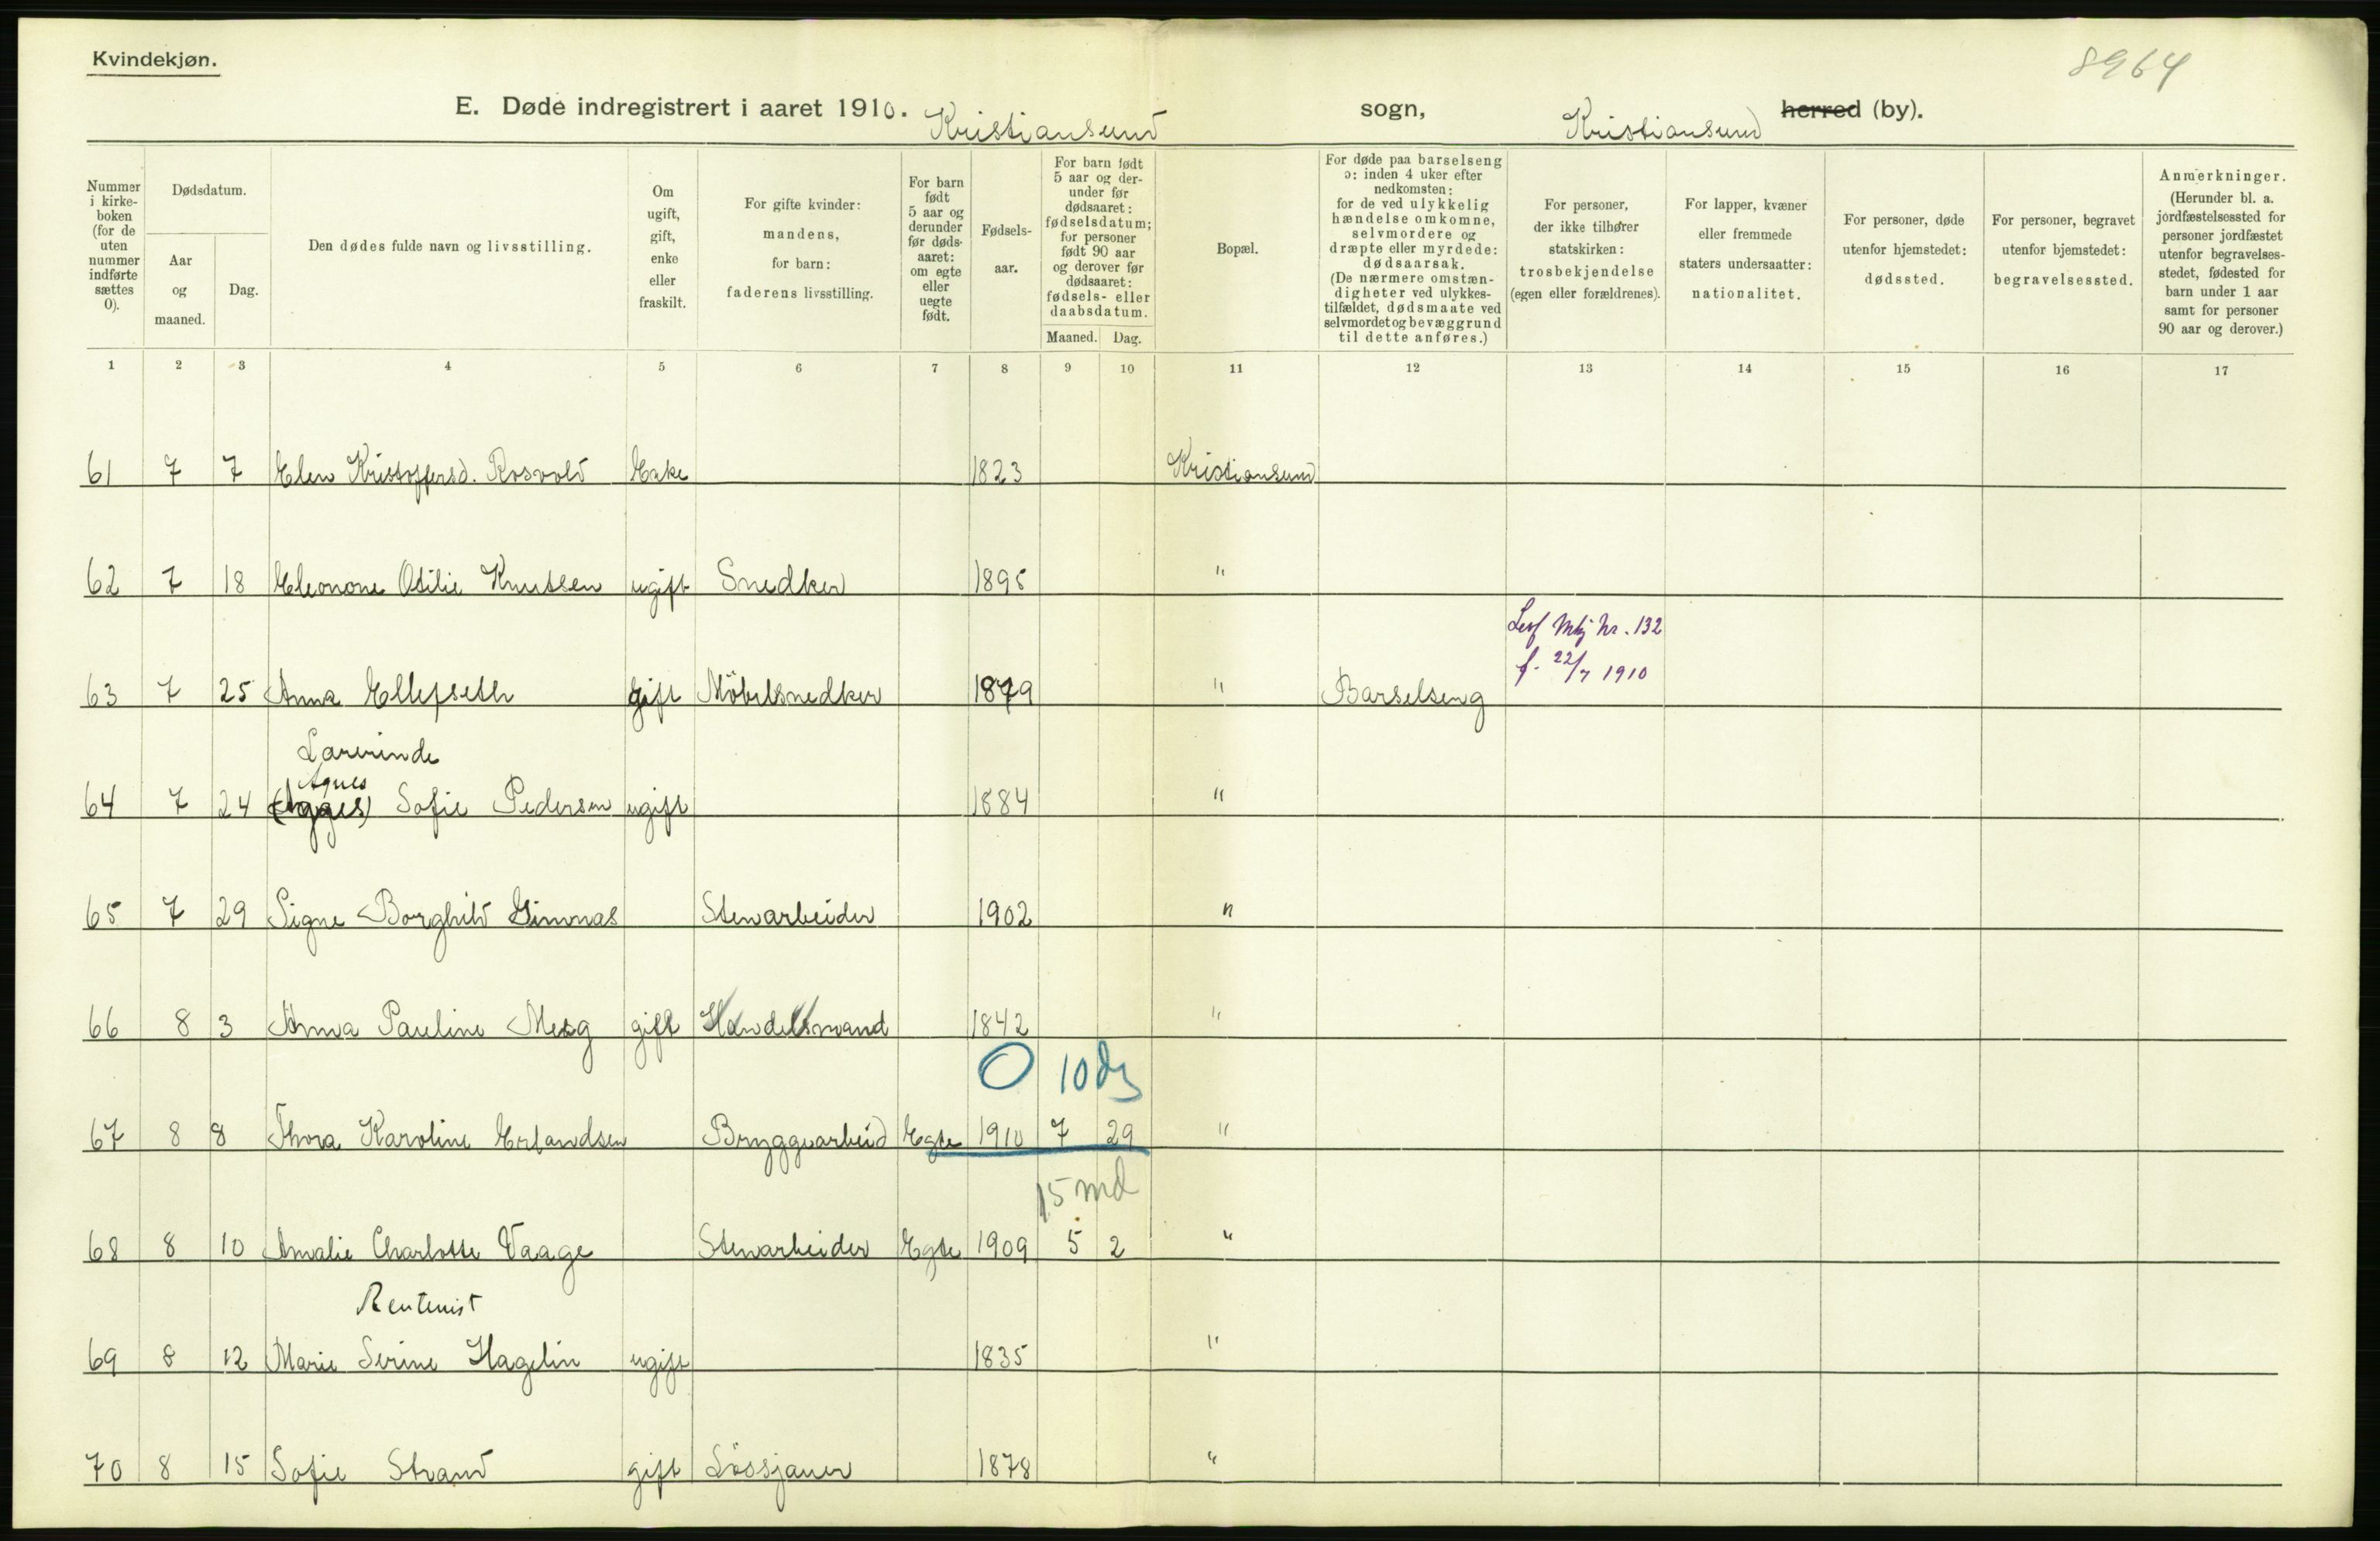 Kvindekjøn.
8964
E. Døde indregistrert i aaret 1910. Kristiansund sogn, Kristiansund herred (by).
Nummer i kirke-boken (for de uten nummer indførte sættes 0).
Dødsdatum.
Aar og maaned.
Dag.
Den dødes fulde navn og livsstilling.
Om ugift, gift, enke eller fraskilt.
For gifte kvinder: mandens, for barn: faderens livsstilling.
For barn født 5 aar og derunder før døds-aaret: om egte eller uegte født.
Fødsels-aar.
For barn født 5 aar og der-under før dødsaaret: fødselsdatum; for personer født 90 aar og derover før dødsaaret: fødsels- eller daabsdatum.
Maaned. Dag.
Bopæl.
For døde paa barselseng ɔ: inden 4 uker efter nedkomsten: for de ved ulykkelig hændelse omkomne, selvmordere og dræpte eller myrdede: dødsaarsak. (De nærmere omstæn-digheter ved ulykkes-tilfældet, dødsmaate ved selvmordet og bevæggrund til dette anføres.)
For personer, der ikke tilhører statskirken: trosbekjendelse (egen eller forældrenes).
For lapper, kvæner eller fremmede staters undersaatter: nationalitet.
For personer, døde utenfor hjemstedet: dødssted.
For personer, begravet utenfor hjemstedet: begravelsessted.
Anmerkninger. (Herunder bl. a. jordfæstelsessted for personer jordfæstet utenfor begravelses-stedet, fødested for barn under 1 aar samt for personer 90 aar og derover.)
1 2 3 4 5 6 7 8 9 10 11 12 13 14 15 16 17
61 7 7 Elen Kristoffersd. Rosvold Enke 1823 Kristiansund
62 7 18 Eleonore Otilie Knutsen ugift Snedker 1895 "
Mkj Nr. 132
f. 22/7 1910
63 7 25 Anna Ellefseth gift Möbelsnedker 1879 " Barselseng
Agnes
64 7 24 Sofie Pedersen ugift 1884 "
65 7 29 Signe Borghild Gimnas Stenarbeider 1902 "
66 8 3 Anna Pauline gift Handelsmand 1842 "
0 10 dg
67 8 8 Thora Karoline Erlandsen Bryggearbeid Egte 1910 7 29 "
15 md
68 8 10 Amalie Charlotte Vaage Stenarbeider Egte 1909 5 2 "
Rentenist
69 8 12 Marie Serine Hagelin ugift 1835 "
70 8 15 Sofie Strand gift Løssjauer 1878 "